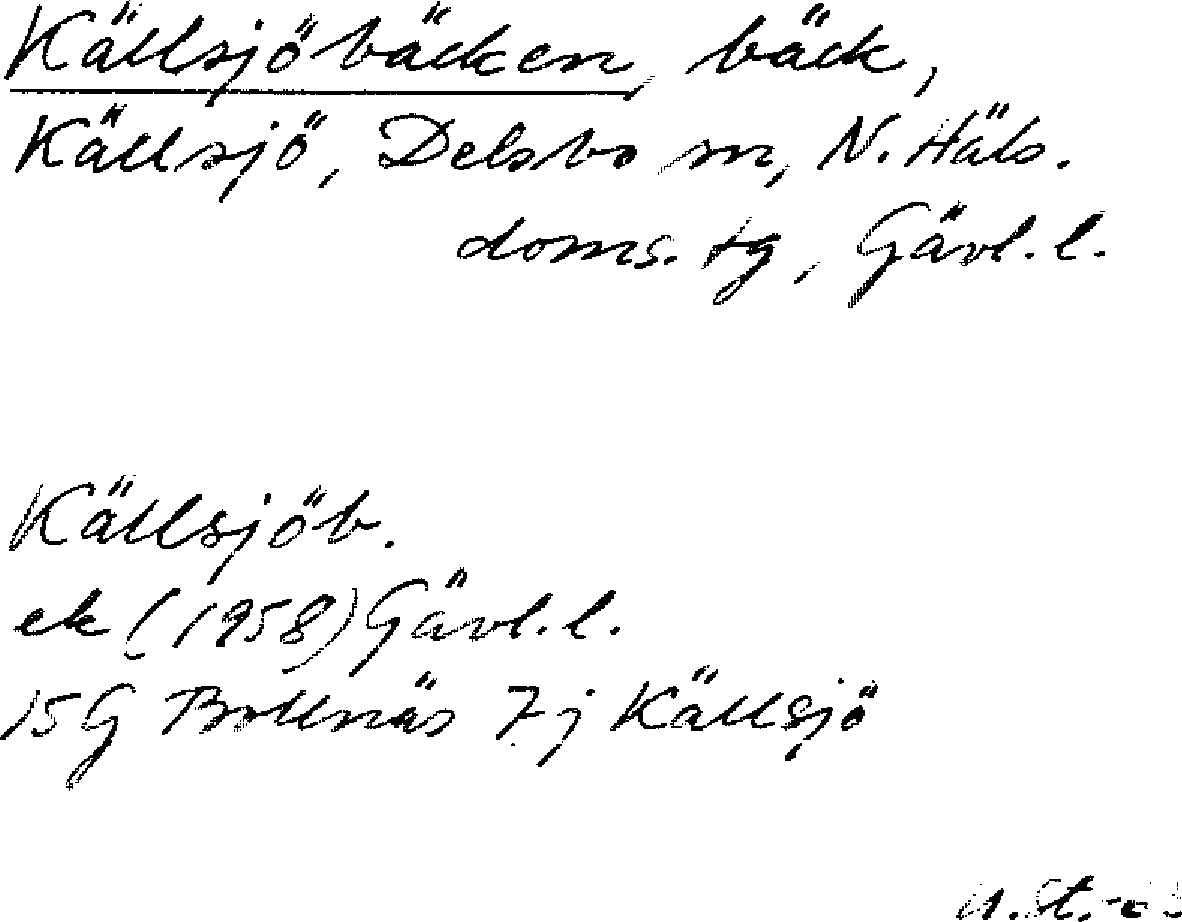 Källsjöbäcken, bäck,
Källsjö, Delsbo sn, N. Häls.
doms. tg, Gävl. l.
Källsjöb.
ek (1958) Gävl. l.
15G Bollnäs 7j Källsjö